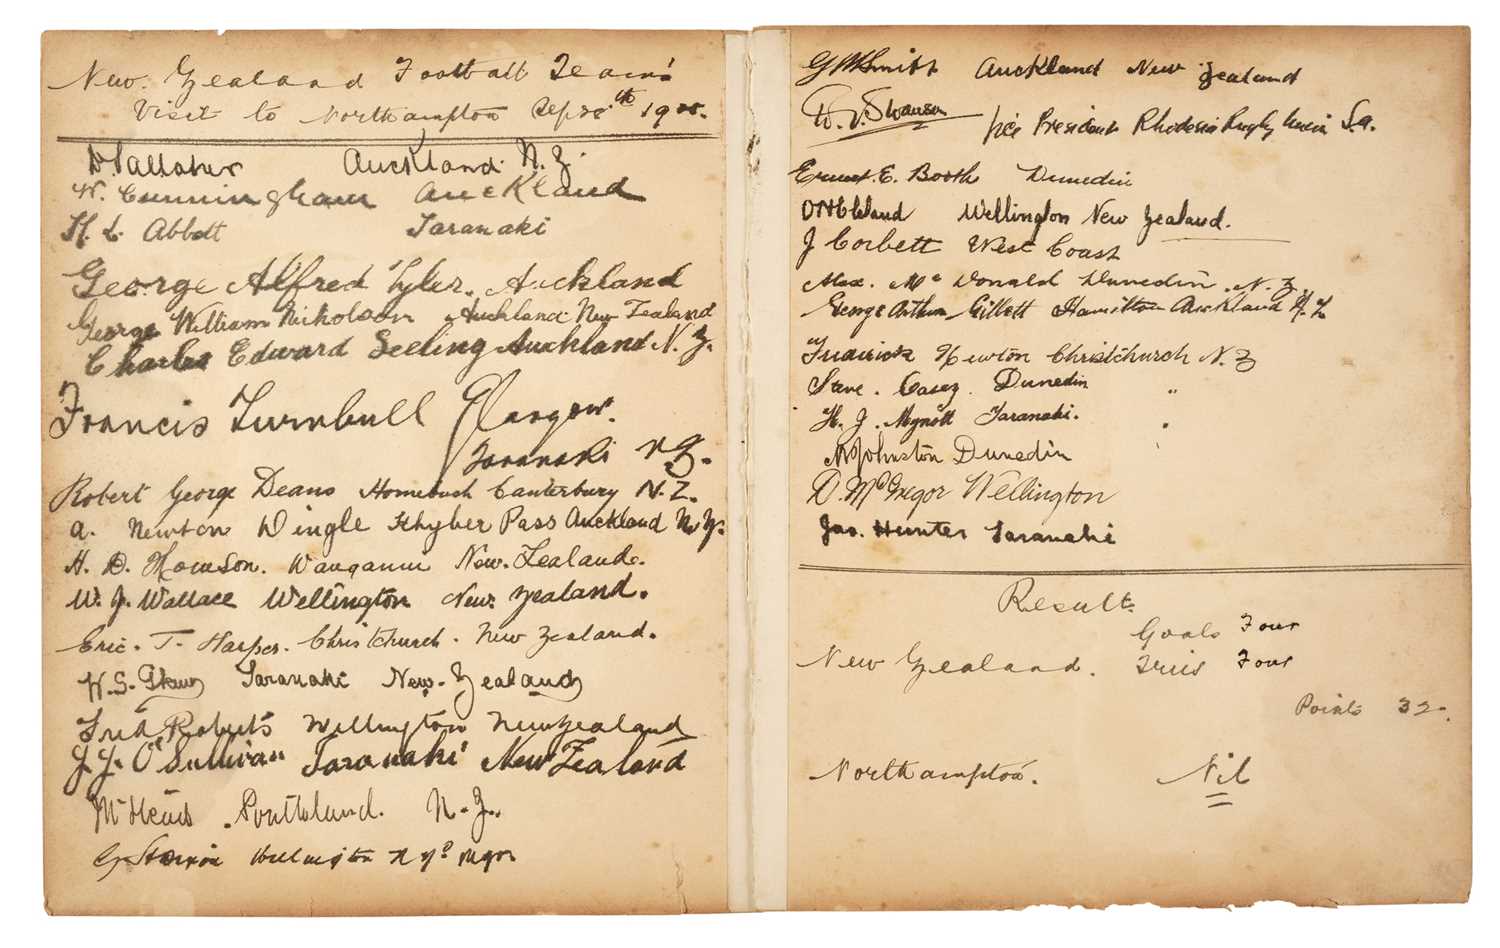 New Zealand Football Team's
Visit to Northampton Sep 28th 1905.
D. Gallaher Auckland N. Z.
W. Cunningham Auckland
H. L. Abbott Taranaki
George Alfred Tyler. Auckland
George William Nicholson Auckland New Zealand
Charles Edward Seeling Auckland N. Z.
Francis Turnbull Glasgow.
Taranaki N Z.
Robert George Deans Homebush Canterbury N. Z.
A. Newton Dingle Khyber Pass Auckland N. Z.
H. D. Thomson. Wanganui New. Zealand.
W. J. Wallace Wellington New Zealand.
Eric. T. Harper. Christchurch. New Zealand.
H. S. Taranaki New. Zealand
Fred Roberts Wellington New Zealand
J. J. O'Sullivan Taranaki New Zealand
Southland. N. Z.
Wellington N Z
G W Smith Auckland New Zealand
Vice President Rhodesia Rugby Union S. A.
Ernest. E. Booth Dunedin
Wellington New Zealand.
J Corbett West Coast
Alex. McDonald Dunedin. N. Z.
George Arthur Gillett Hamilton Auckland N. Z.
Frederick Newton Christchurch N. Z
Steve. Casey. Dunedin "
H. J. Mynott Taranaki. "
W Johnston Dunedin
D. McGregor Wellington
Jas. Hunter Taranaki
Result.
Goals Four
New Zealand. Tries Four
Points 32.
Northampton. Nil